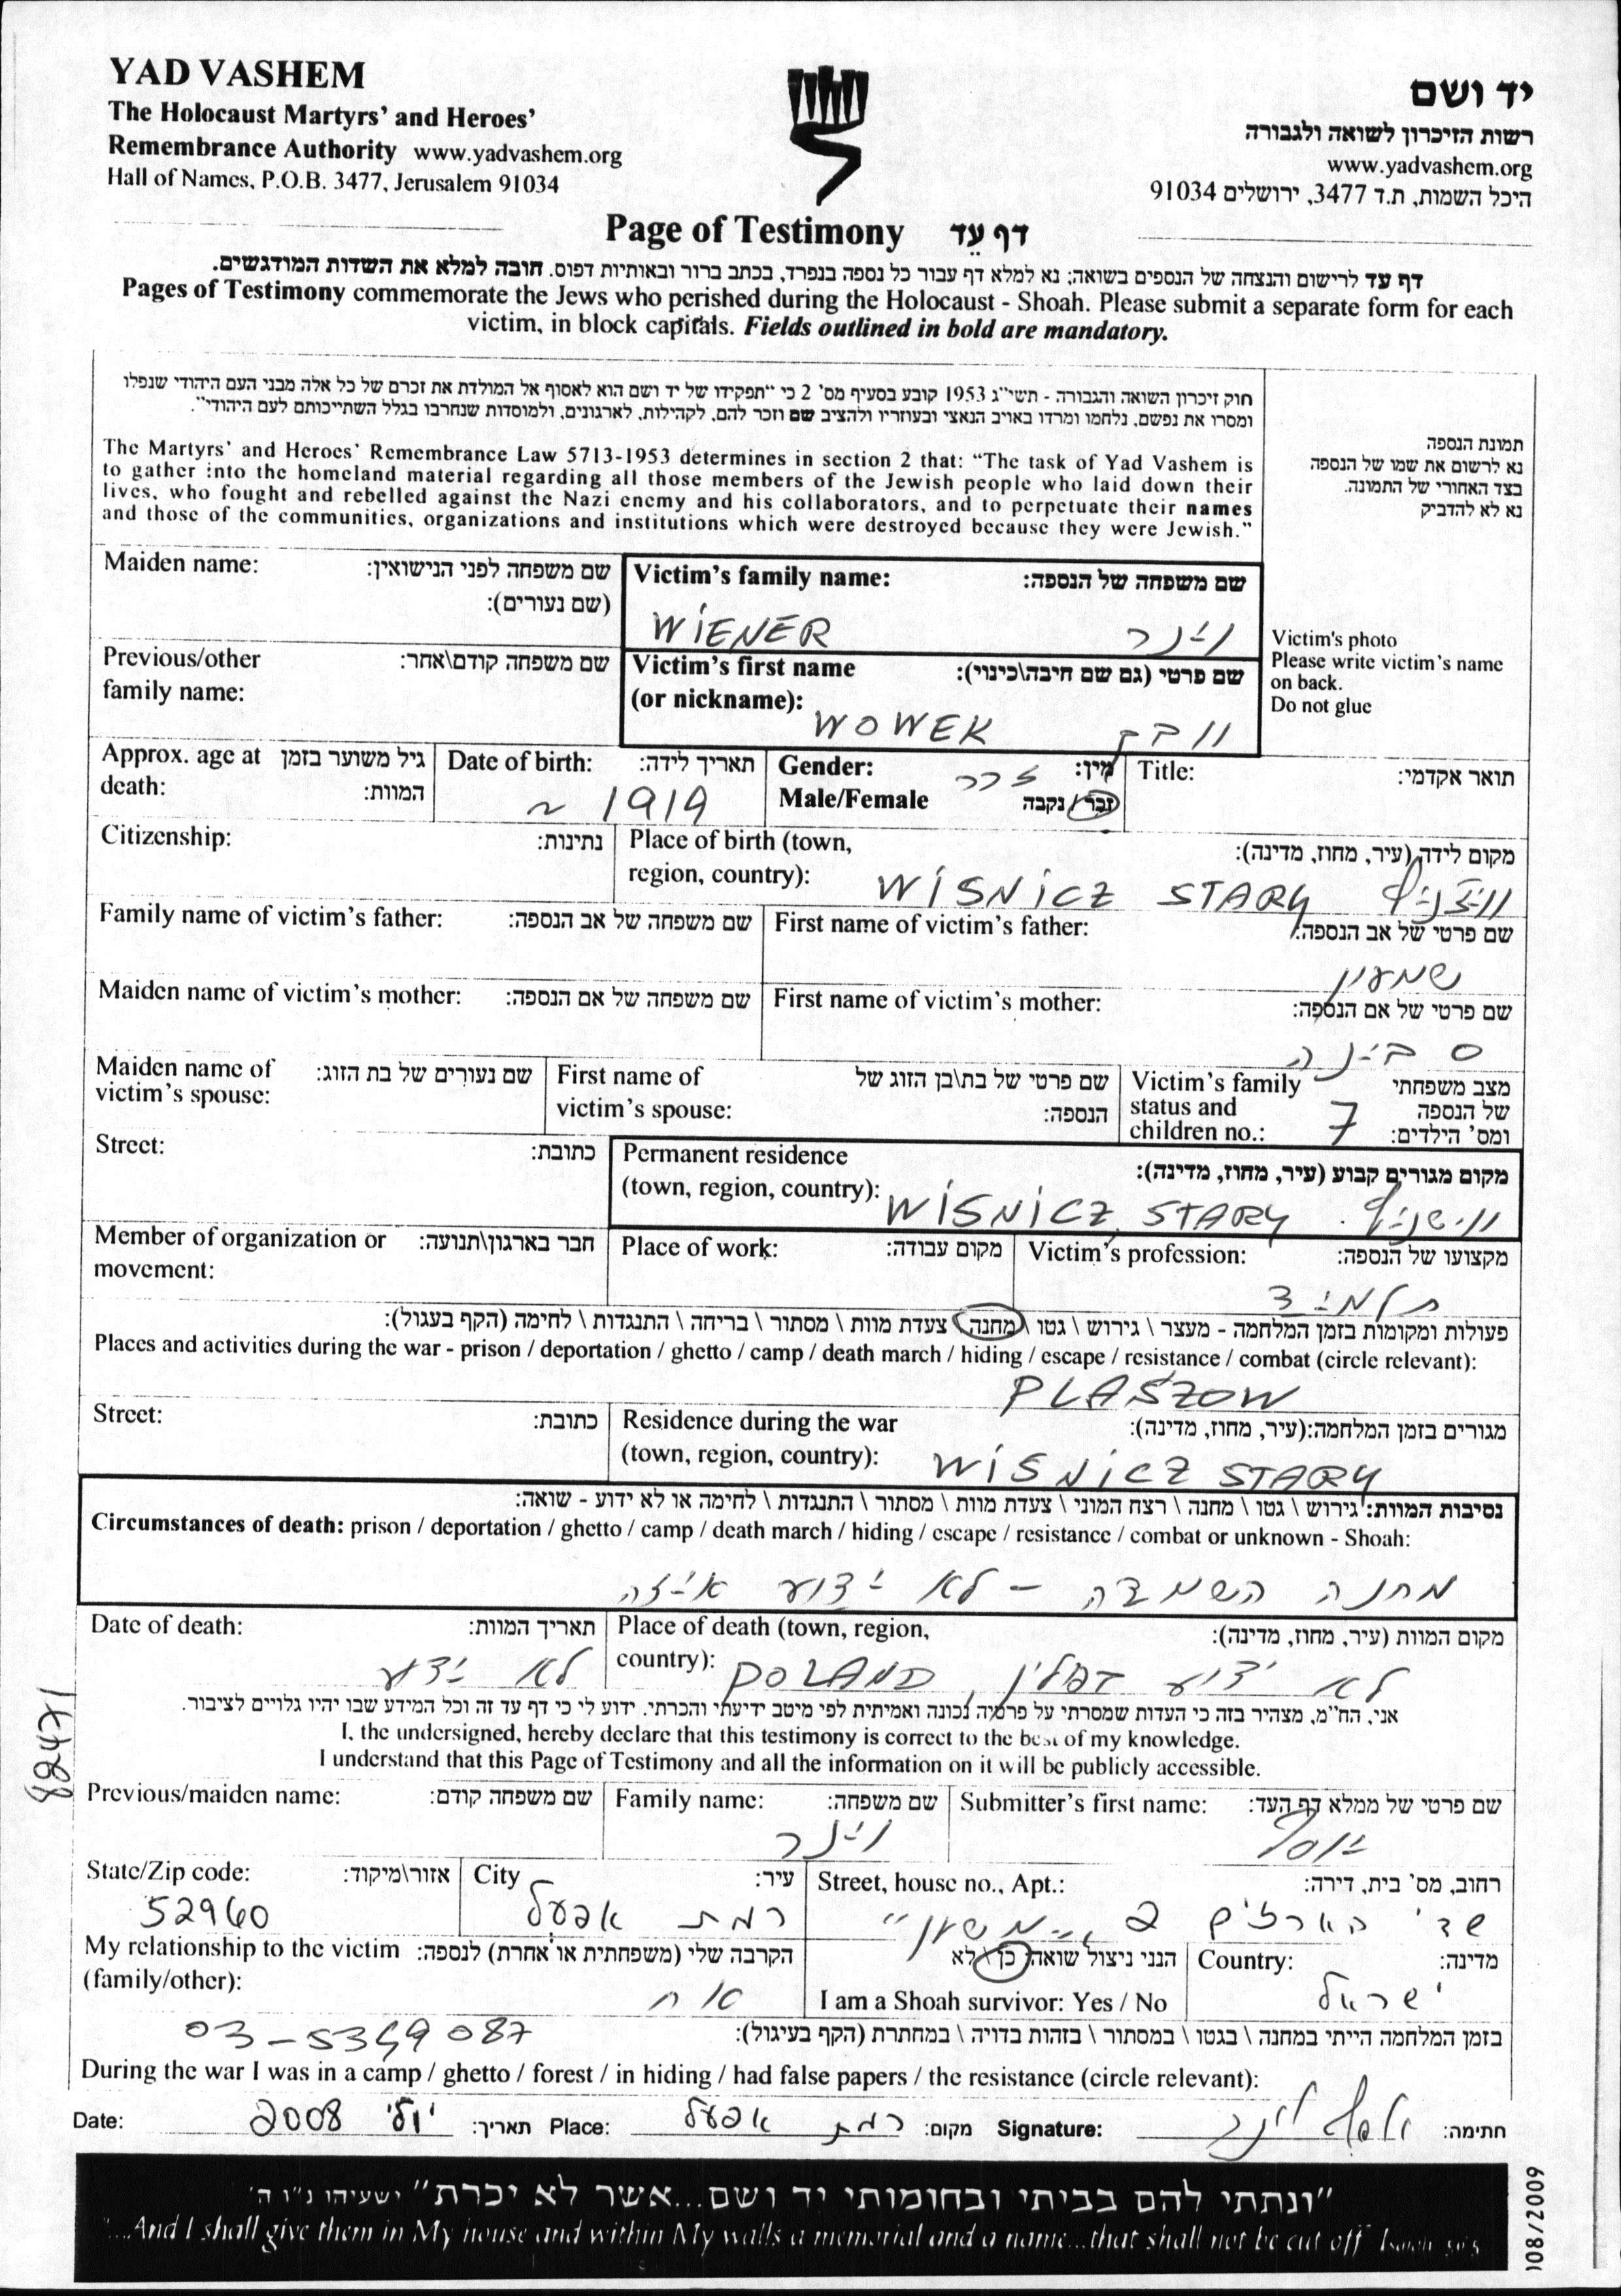 YAD VASHEM
The Holocaust Martyrs' and Heroes'
Remembrance Authority www.yadvashem.org
Hall of Names, P.O.B. 3477, Jerusalem 91034
יד ושם
רשות הזיכרון לשואה ולגבורה
www.yadvashem.org
היכל השמות, ת.ד 3477, ירושלים 91034
Page of Testimony דף עֵד
דף עד לרישום והנצחה של הנספים בשואה; נא למלא דף עבור כל נספה בנפרד, בכתב ברור ובאותיות דפוס. חובה למלא את השדות המודגשים.
Pages of Testimony commemorate the Jews who perished during the Holocaust - Shoah. Please submit a separate form for each
victim, in block capitals. Fields outlined in bold are mandatory.
חוק זיכרון השואה והגבורה - תשי"ג 1953 קובע בסעיף מס' 2 כי "תפקידו של יד ושם הוא לאסוף אל המולדת את זכרם של כל אלה מבני העם היהודי שנפלו
ומסרו את נפשם, נלחמו ומרדו באויב הנאצי ובעוזריו ולהציב שם וזכר להם, לקהילות, לארגונים, ולמוסדות שנחרבו בגלל השתייכותם לעם היהודי".
The Martyrs' and Heroes' Remembrance Law 5713-1953 determines in section 2 that: "The task of Yad Vashem is
to gather into the homeland material regarding all those members of the Jewish people who laid down their
lives, who fought and rebelled against the Nazi enemy and his collaborators, and to perpetuate their names
and those of the communities, organizations and institutions which were destroyed because they were Jewish."
תמונת הנספה
נא לרשום את שמו של הנספה
בצד האחורי של התמונה.
נא לא להדביק
Victim's photo
Please write victim's name
on back.
Do not glue
Maiden name: שם משפחה לפני הנישואין:
(שם נעורים):
Victim's family name: שם משפחה של הנספה:
WIENER וינר
Previous/other שם משפחה קודם\אחר:
family name:
Victim's first name שם פרטי (גם שם חיבה\כינוי):
(or nickname):
WOWEK וובק
Approx. age at גיל משוער בזמן
death: המוות:
Date of birth: תאריך לידה:
~ 1919
Gender: מין: זכר
Male/Female זכר / נקבה
Title: תואר אקדמי:
Citizenship: נתינות:
Place of birth (town, מקום לידה (עיר, מחוז, מדינה):
region, country):
WISNICZ STARY
Family name of victim's father: שם משפחה של אב הנספה:
First name of victim's father: שם פרטי של אב הנספה:
שמעון
Maiden name of victim's mother: שם משפחה של אם הנספה:
First name of victim's mother: שם פרטי של אם הנספה:
סבינה
Maiden name of שם נעורים של בת הזוג:
victim's spouse:
First name of שם פרטי של בת\בן הזוג של
victim's spouse: הנספה:
Victim's family מצב משפחתי
status and של הנספה
children no.: ומס' הילדים:
7
Street: כתובת:
Permanent residence מקום מגורים קבוע (עיר, מחוז, מדינה):
(town, region, country):
WISNICZ STARY
Member of organization or חבר בארגון\תנועה:
movement:
Place of work: מקום עבודה:
Victim's profession: מקצועו של הנספה:
תלמיד
פעולות ומקומות בזמן המלחמה - מעצר \ גירוש \ גטו \ מחנה \ צעדת מוות \ מסתור \ בריחה \ התנגדות \ לחימה (הקף בעגול):
Places and activities during the war - prison / deportation / ghetto / camp / death march / hiding / escape / resistance / combat (circle relevant):
PLASZOW
Street: כתובת:
Residence during the war מגורים בזמן המלחמה:(עיר, מחוז, מדינה):
(town, region, country):
WISNICZ STARY
נסיבות המוות: גירוש \ גטו \ מחנה \ רצח המוני \ צעדת מוות \ מסתור \ התנגדות \ לחימה או לא ידוע - שואה:
Circumstances of death: prison / deportation / ghetto / camp / death march / hiding / escape / resistance / combat or unknown - Shoah:
מחנה השמדה - לא ידוע איזה
Date of death: תאריך המוות:
לא ידוע
Place of death (town, region, מקום המוות (עיר, מחוז, מדינה):
country):
לא ידוע בפולין, POLAND
אני, הח"מ, מצהיר בזה כי העדות שמסרתי על פרטיה נכונה ואמיתית לפי מיטב ידיעתי והכרתי. ידוע לי כי דף עד זה וכל המידע שבו יהיו גלויים לציבור.
I, the undersigned, hereby declare that this testimony is correct to the best of my knowledge.
I understand that this Page of Testimony and all the information on it will be publicly accessible.
Previous/maiden name: שם משפחה קודם:
Family name: שם משפחה:
וינר
Submitter's first name: שם פרטי של ממלא דף העד:
יוסף
State/Zip code: אזור\מיקוד:
52960
City עיר:
רמת אפעל
Street, house no., Apt.: רחוב, מס' בית, דירה:
שד' הארזים 2 "משען"
My relationship to the victim הקרבה שלי (משפחתית או אחרת) לנספה:
(family/other):
אח
הנני ניצול שואה כן \ לא
I am a Shoah survivor: Yes / No
Country: מדינה:
ישראל
03-5349087
בזמן המלחמה הייתי במחנה \ בגטו \ במסתור \ בזהות בדויה \ במחתרת (הקף בעיגול):
During the war I was in a camp / ghetto / forest / in hiding / had false papers / the resistance (circle relevant):
Date: יולי 2008 תאריך: Place: רמת אפעל מקום: Signature: יוסף וינר חתימה:
"ונתתי להם בביתי ובחומותי יד ושם...אשר לא יכרת" ישעיהו נ"ו ה'
"...And I shall give them in My house and within My walls a memorial and a name...that shall not be cut off" Isaiah 56:5
88471
108/2009